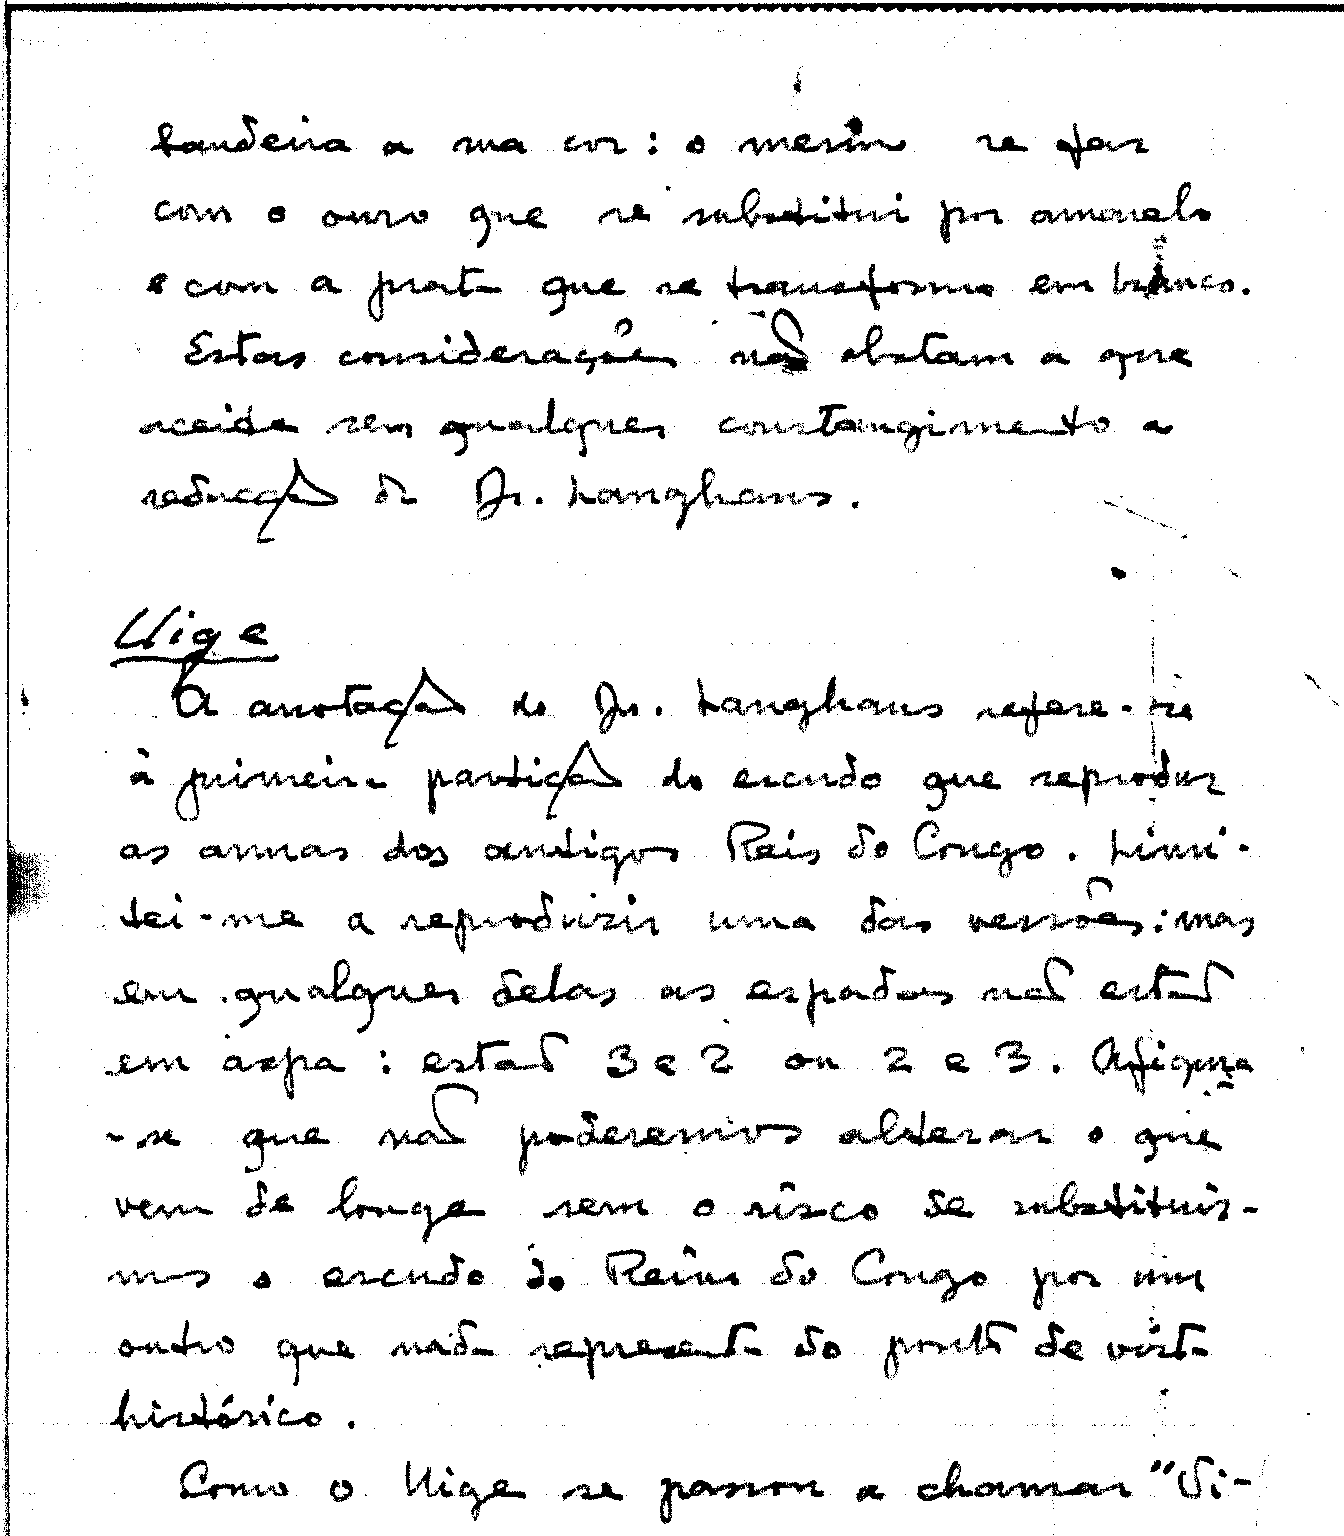 bandeira a sua cor: o mesmo se faz
com o ouro que se substitui por amarelo
e com a prata que se transforma em branco.
Estas considerações não obstam a que
aceite sem qualquer constrangimento a
redacção do Dr. Langhans.
Uige
A anotação do Dr. Langhans refere-se
à primeira partição do escudo que reproduz
as armas dos antigos Reis do Congo. Limi-
tei-me a reproduzir uma das versões: mas
em qualquer delas as espadas não estão
em aspa: estão 3 e 2 ou 2 e 3. Afigura
-se que não poderemos alterar o que
vem de longe sem o risco de substituir-
mos o escudo do Reino do Congo por um
outro que nada representa do ponto de vista
histórico.
Como o Uige se passou a chamar "Vi-